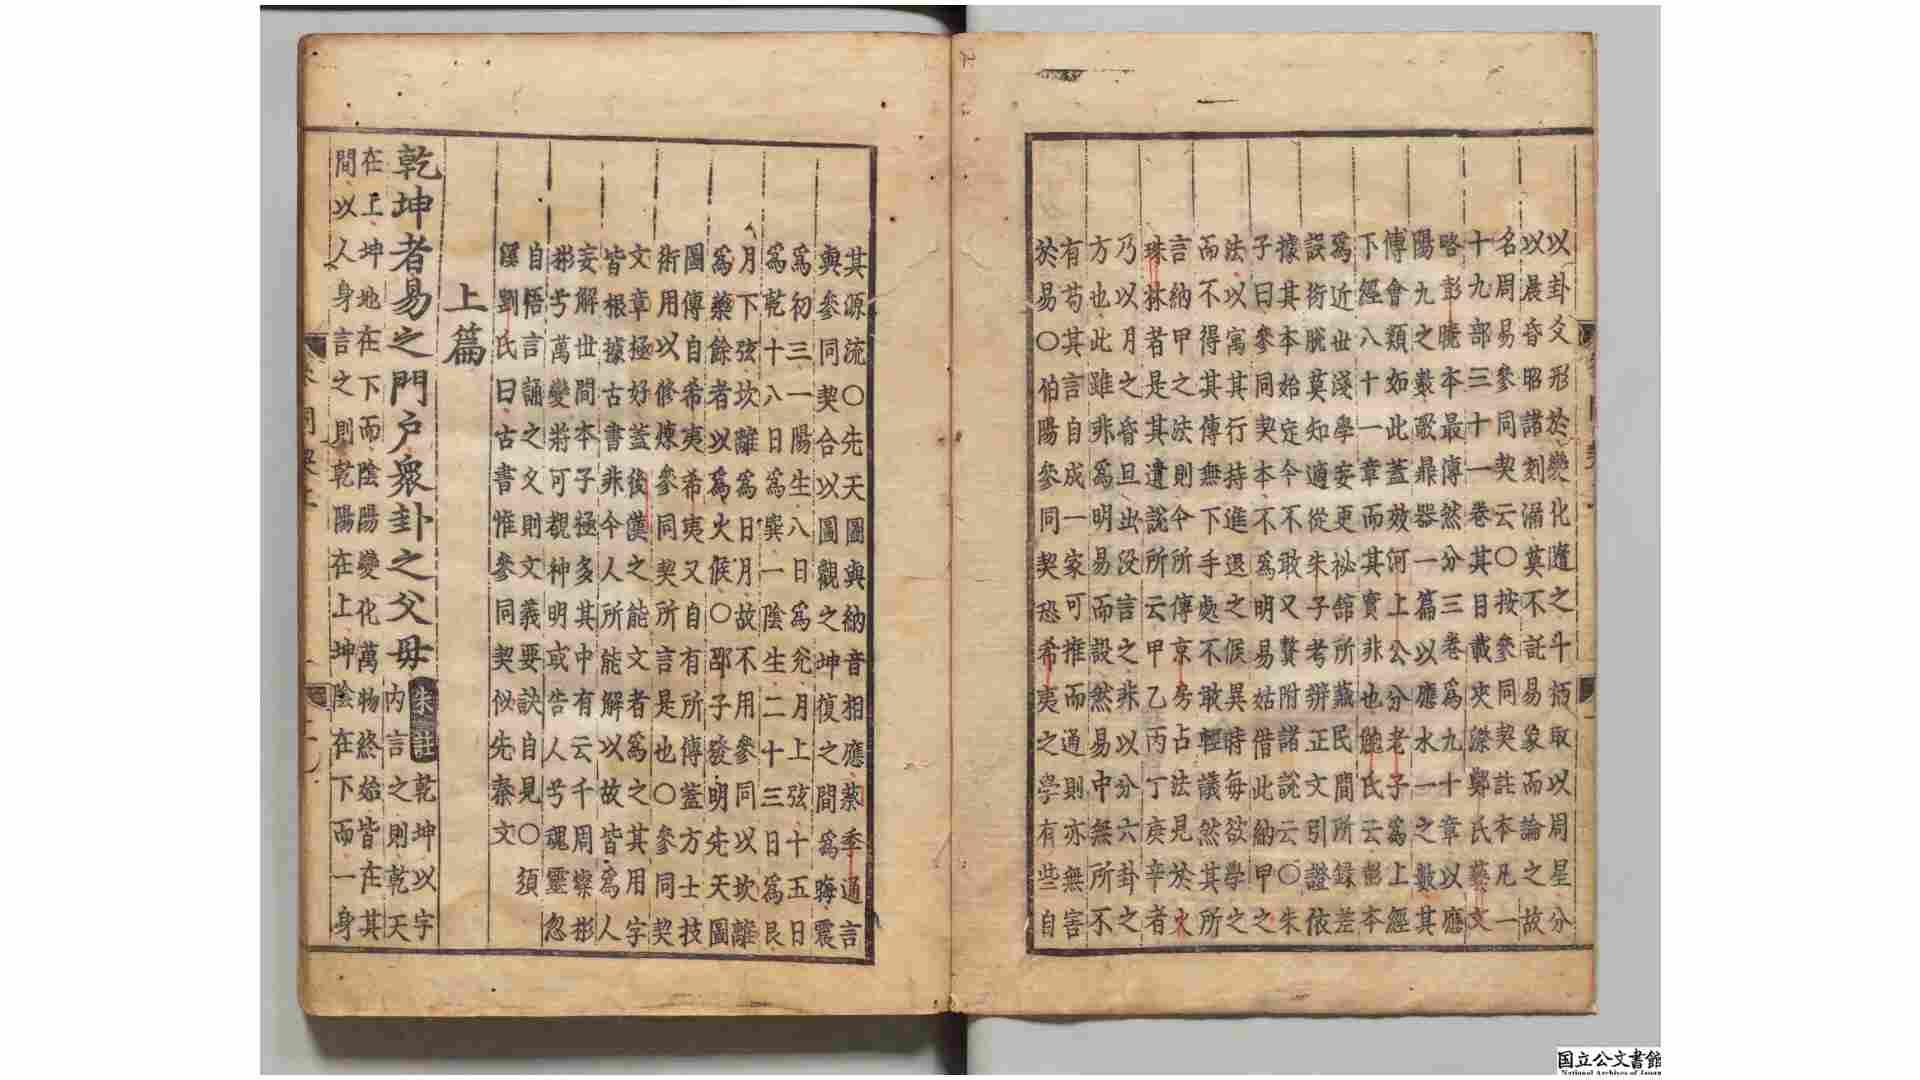 以卦爻形於變化隨之斗柄取以周星分
以晨昏昭諸刻漏莫不託易象而論之故
名周易參同契云〇按參同契註本凡一
十九部三十一卷其目載夾漈鄭氏藝文
略彭曉本最傳然分三卷爲九十章以應
陽九之數歌鼎器一篇以應水一之數其
傳會類如此蓋效河上公分老子爲上經
下經八十一章而其實非也鮑氏云彭本
爲近世淺學妄更祕舘所藏民間所録差
誤衍脫莫知適從朱子考辨正文引證依
據其本始定今不敢又贅附諸說云〇朱
子曰參同契本不爲明易姑借此納甲之
法以寓其行持進退之候異時每欲學之
而不得其傳無下手處不敢輕議然其所
言納甲之法則今所傳京房占法見於火
珠林者是其遺說所云甲乙丙丁庚辛者
乃以月之昏旦出没言之非以分六卦之
方也此雖非爲明易而設然易中無所不
有苟其言自成一家可推而通則亦無害
於易〇伯陽參同契恐希夷之學有些自
其源流〇先天圖與納音相應蔡季通言
與參同契合以圖觀之坤復之間爲晦震
爲初三一陽生八日爲兊月上弦十五日
爲乾十八日爲巽一陰生二十三日爲艮
月下弦坎離爲日月故不用參同以坎離
爲藥餘者以爲火候〇邵子發明先天圖
圖傳自希夷希夷又自有所傳蓋方士技
術用以修煉參同契所言是也〇參同契
文章極好蓋後漢之能文者爲之其用字
皆根據古書非今人所能解以故皆爲人
妄解世間本子極多其中有云千周燦彬
彬兮萬變將可覩神明或告人兮魂靈忽
自悟言誦之文則文義要訣自見〇須
溪劉氏曰古書惟參同契似先秦文
上篇
乾坤者易之門戶衆卦之父母朱註乾坤以字
内言之則乾天
在上坤地在下而陰陽變化萬物終始皆在其
間以人身言之則乾陽在上坤陰在下而一身
国立公文書館
National Archives of Japan